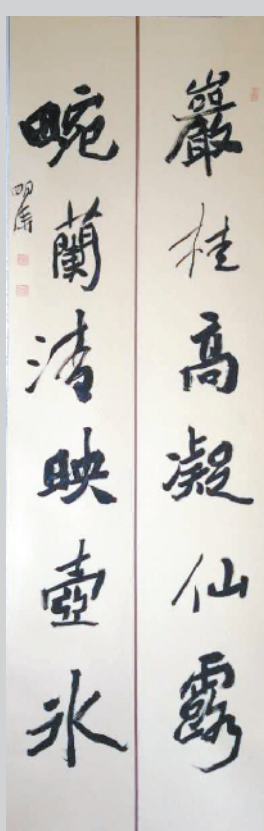 巖桂高凝仙露
畹蘭清映壺冰
明